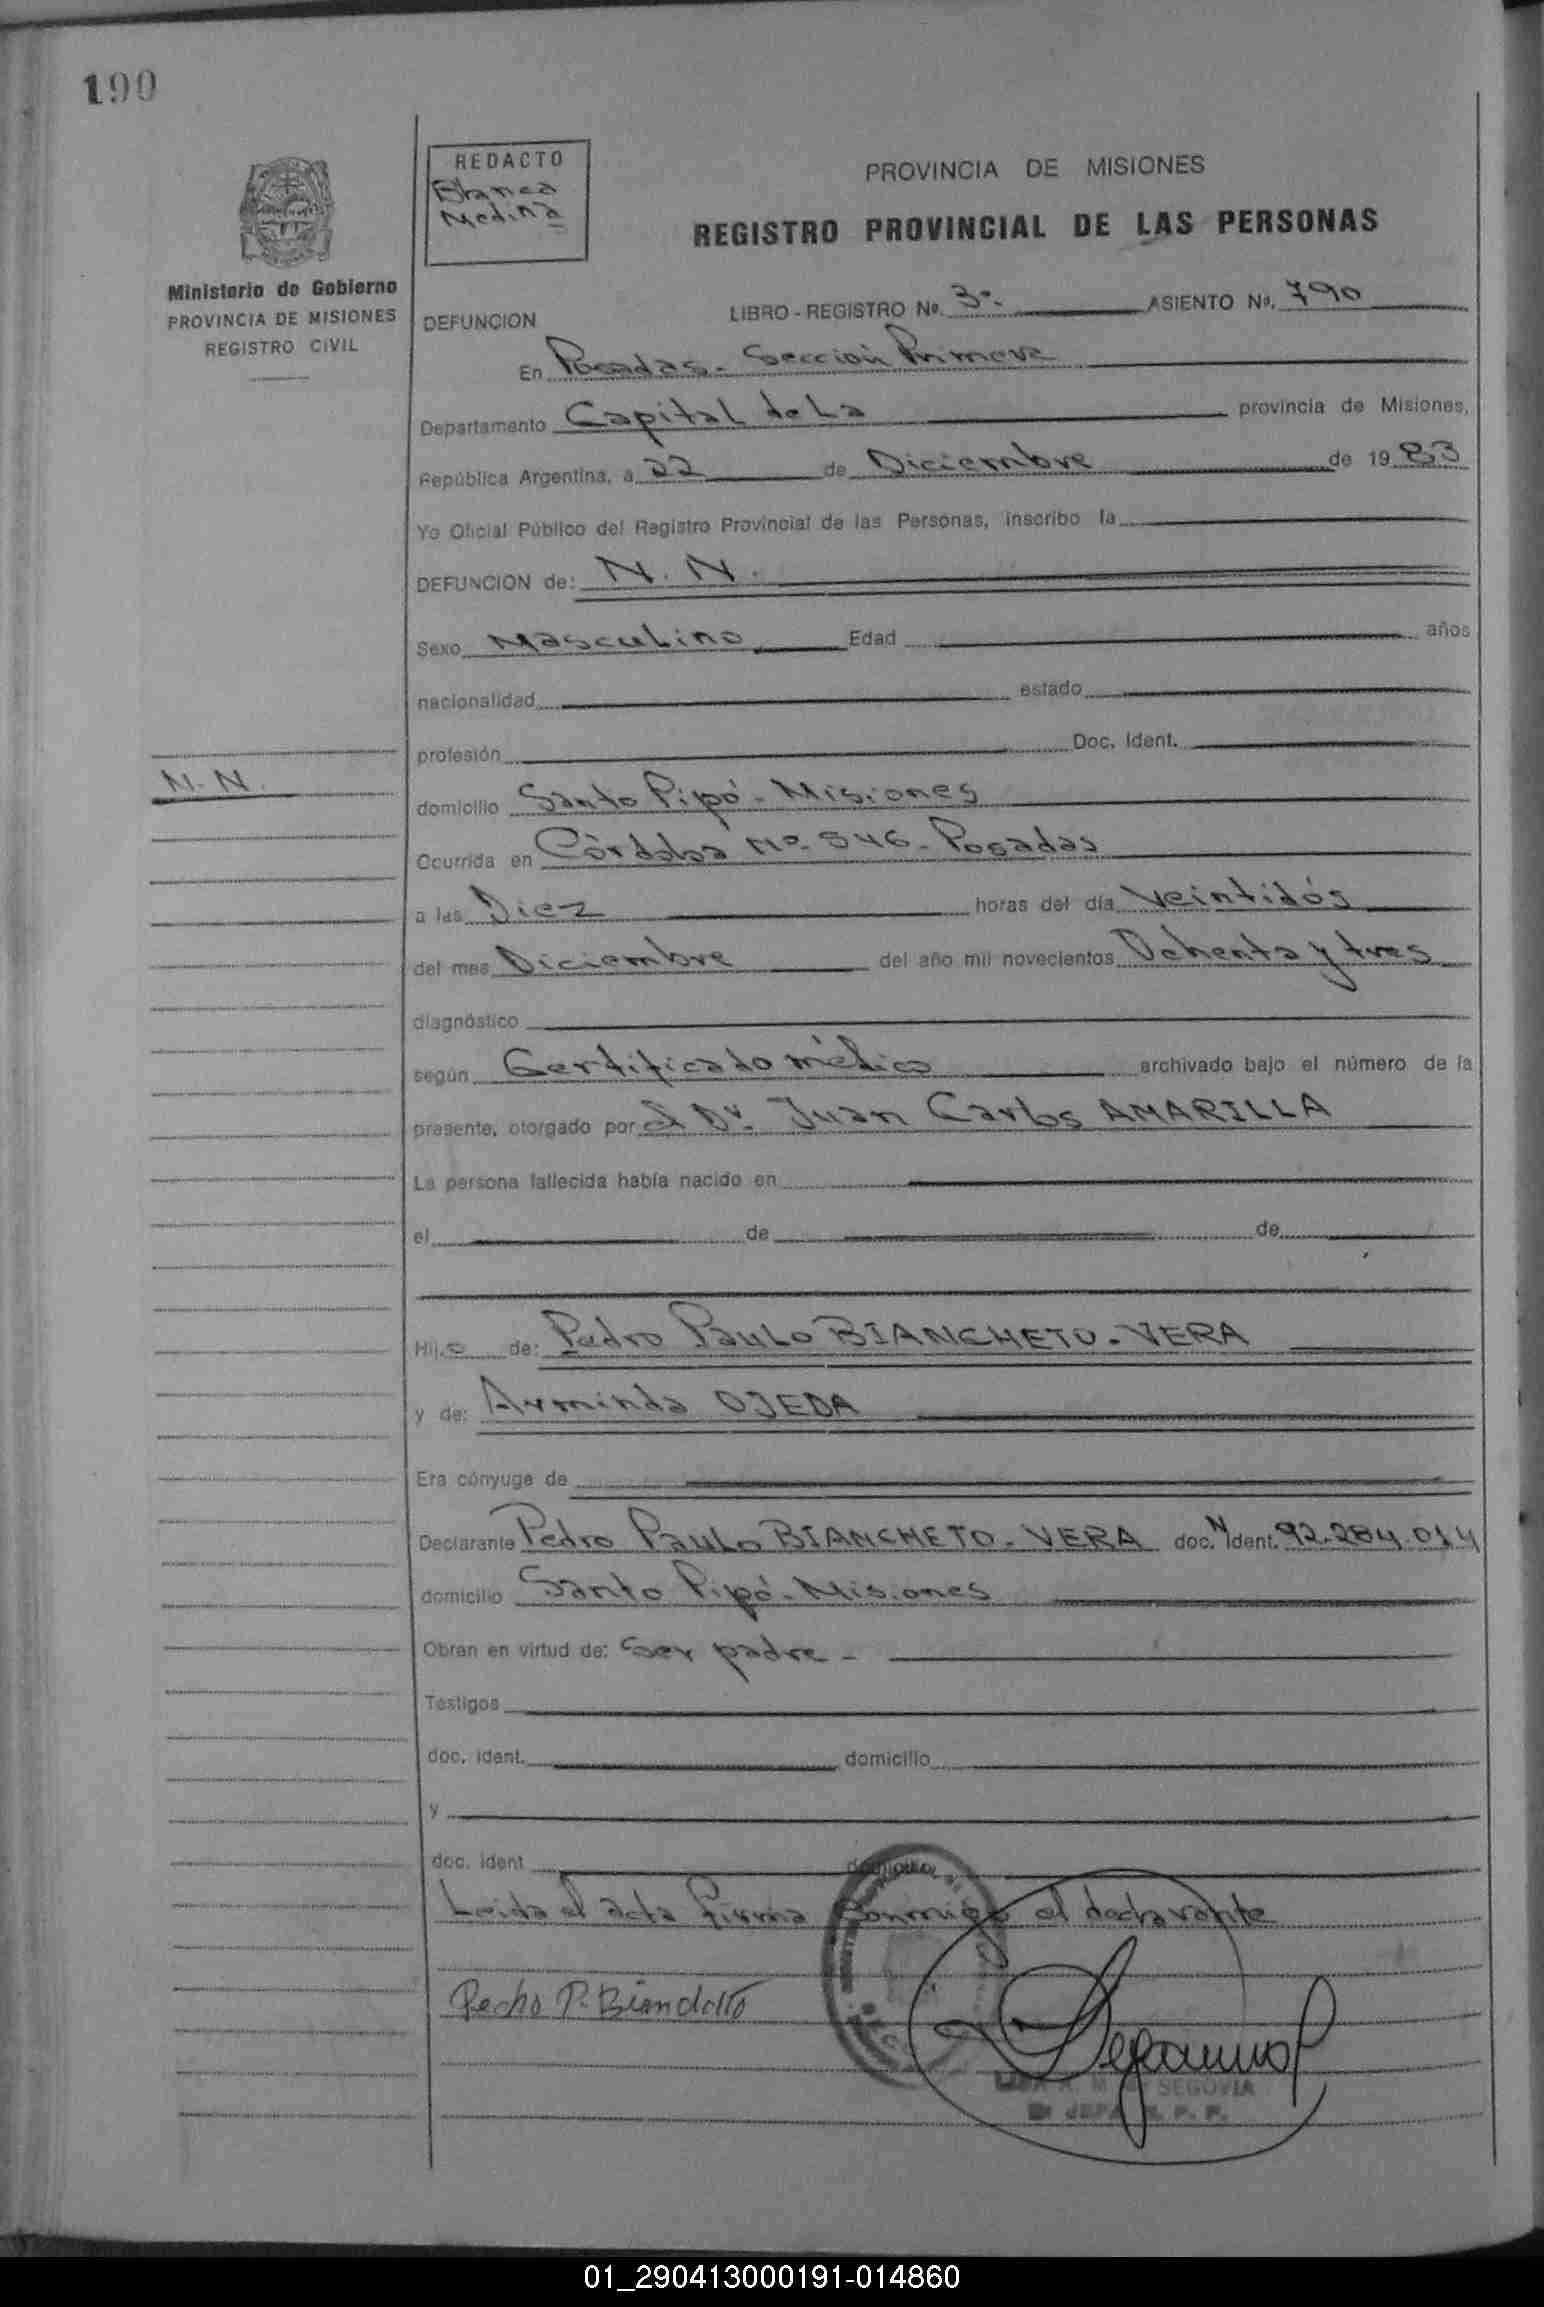 190
REDACTO
Blanca
Medina
Ministerio de Gobierno
PROVINCIA DE MISIONES
REGISTRO CIVIL
PROVINCIA DE MISIONES
REGISTRO PROVINCIAL DE LAS PERSONAS
DEFUNCION LIBRO - REGISTRO Nº. 3º. ASIENTO Nº. 790
En Posadas - Sección Primera
Departamento Capital de La provincia de Misiones,
República Argentina, a 22 de Diciembre de 19 83
Yo Oficial Público del Registro Provincial de las Personas, inscribo la
DEFUNCION de: N. N.
Sexo Masculino Edad años
nacionalidad estado
profesión Doc. Ident.
N. N.
domicilio Santo Pipó - Misiones
Ocurrida en Córdoba Nº. 546 - Posadas
a las Diez horas del día Veintidós
del mes Diciembre del año mil novecientos Ochenta y tres
diagnóstico
según Certificado médico archivado bajo el número de la
presente, otorgado por el Dr. Juan Carlos AMARILLA
La persona fallecida había nacido en
el de de
Hij o de: Pedro Paulo BIANCHETO - VERA
y de: Arminda OJEDA
Era cónyuge de
Declarante Pedro Paulo BIANCHETO - VERA doc. N Ident. 92.284.014
domicilio Santo Pipó - Misiones
Obran en virtud de: Ser padre -
Testigos
doc. ident. domicilio
y
doc. ident domicilio
Leida el acta firma conmigo el declarante
SEGOVIA
01_290413000191-014860